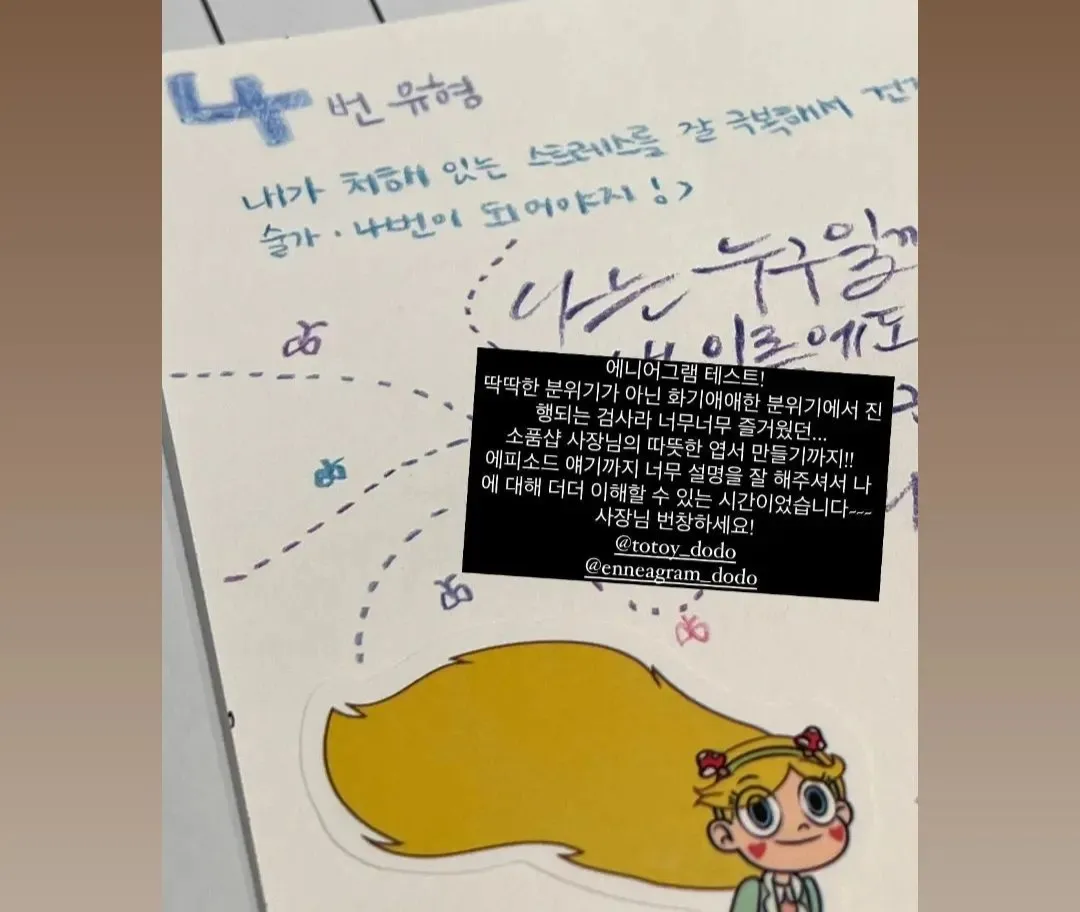 4번 유형
내가 처해 있는 스트레스를 잘 극복해서 건
술가·4번이 되어야지!>
나는 누구일까
이름에도
에니어그램 테스트!
딱딱한 분위기가 아닌 화기애애한 분위기에서 진
행되는 검사라 너무너무 즐거웠던...
소품샵 사장님의 따뜻한 엽서 만들기까지!!
에피소드 얘기까지 너무 설명을 잘 해주셔서 나
에 대해 더더 이해할 수 있는 시간이었습니다~~~
사장님 번창하세요!
@totoy_dodo
@enneagram_dodo